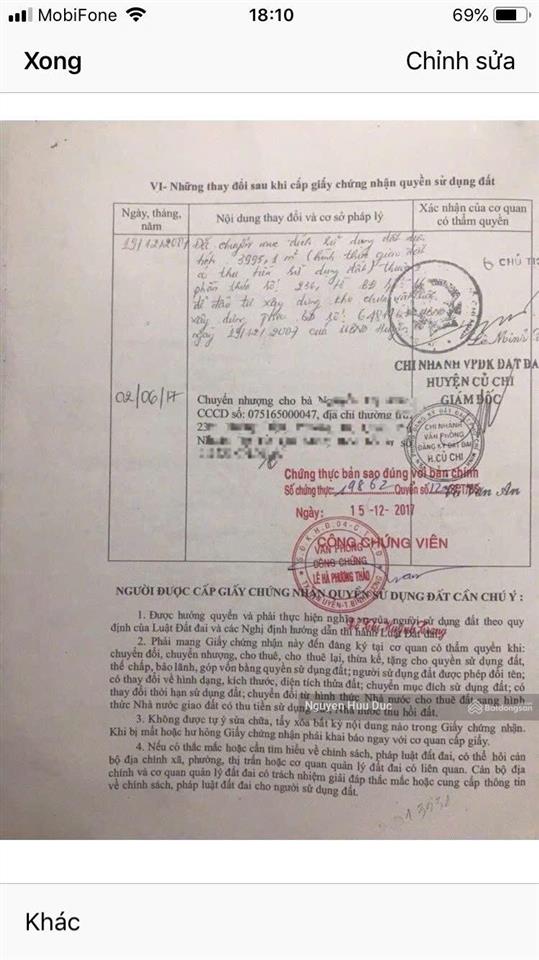 MobiFone
18:10
69%
Xong
Chỉnh sửa
VI- Những thay đổi sau khi cấp giấy chứng nhận quyền sử dụng đất
Ngày, tháng, năm
Nội dung thay đổi và cơ sở pháp lý
Xác nhận của cơ quan có thẩm quyền
Đã chuyển mục đích sử dụng đất
3995,1 m² (hình thức giao đất
có thu tiền sử dụng đất) thuộc
số: 236, tờ
để đầu tư xây dựng
xây dựng
ngày 19/12/2007 của UBND Huyện
CHỦ
CHI NHÁNH VPĐK ĐẤT ĐA
HUYỆN CỦ CHI
GIÁM ĐỐC
02/06/17
Chuyển nhượng cho bà
CCCD số: 075165000047, địa chỉ thường
CHI NHÁNH
VĂN PHÒNG
ĐĂNG KÝ ĐẤT ĐAI
H.CỦ CHI
An
Chứng thực bản sao đúng với bản chính
Số chứng thực: 19862 Quyển số
Ngày: 15-12-2017
CÔNG CHỨNG VIÊN
VĂN PHÒNG
CÔNG CHỨNG
LÊ HÀ PHƯƠNG THẢO
NGƯỜI ĐƯỢC CẤP GIẤY CHỨNG NHẬN QUYỀN SỬ DỤNG ĐẤT CẦN CHÚ Ý :
1. Được hưởng quyền và phải thực hiện nghĩa vụ của người sử dụng đất theo quy
định của Luật Đất đai và các Nghị định hướng dẫn thi hành Luật Đất đai.
2. Phải mang Giấy chứng nhận này đến đăng ký tại cơ quan có thẩm quyền khi:
chuyển đổi, chuyển nhượng, cho thuê, cho thuê lại, thừa kế, tặng cho quyền sử dụng đất,
thế chấp, bảo lãnh, góp vốn bằng quyền sử dụng đất; người sử dụng đất được phép đổi tên;
có thay đổi về hình dạng, kích thước, diện tích thửa đất; chuyển mục đích sử dụng đất; có
thay đổi thời hạn sử dụng đất; chuyển đổi từ hình thức Nhà nước cho thuê đất sang hình
thức Nhà nước giao đất có thu tiền sử dụng đất; Nhà nước thu hồi đất.
Nguyen Huu Duc
Batdongsan
3. Không được tự ý sửa chữa, tẩy xóa bất kỳ nội dung nào trong Giấy chứng nhận.
Khi bị mất hoặc hư hỏng Giấy chứng nhận phải khai báo ngay với cơ quan cấp giấy.
4. Nếu có thắc mắc hoặc cần tìm hiểu về chính sách, pháp luật đất đai, có thể hỏi cán
bộ địa chính xã, phường, thị trấn hoặc cơ quan quản lý đất đai có liên quan. Cán bộ địa
chính và cơ quan quản lý đất đai có trách nhiệm giải đáp thắc mắc hoặc cung cấp thông tin
về chính sách, pháp luật đất đai cho người sử dụng đất.
Khác